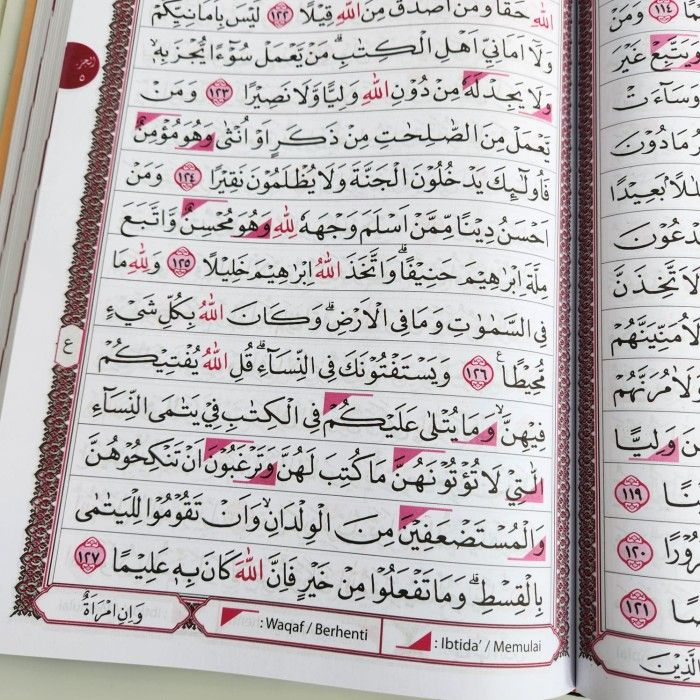 اللّٰهِ حَقًّا وَمَنْ اَصْدَقُ مِنَ اللّٰهِ قِيْلًا ١٢٢ لَيْسَ بِاَمَانِيِّكُمْ
وَلَآ اَمَانِيِّ اَهْلِ الْكِتٰبِ ۗ مَنْ يَّعْمَلْ سُوْۤءًا يُّجْزَ بِهٖ
وَلَا يَجِدْ لَهٗ مِنْ دُوْنِ اللّٰهِ وَلِيًّا وَّلَا نَصِيْرًا ١٢٣ وَمَنْ
يَّعْمَلْ مِنَ الصّٰلِحٰتِ مِنْ ذَكَرٍ اَوْ اُنْثٰى وَهُوَ مُؤْمِنٌ
فَاُولٰۤىِٕكَ يَدْخُلُوْنَ الْجَنَّةَ وَلَا يُظْلَمُوْنَ نَقِيْرًا ١٢٤ وَمَنْ
اَحْسَنُ دِيْنًا مِّمَّنْ اَسْلَمَ وَجْهَهٗ لِلّٰهِ وَهُوَ مُحْسِنٌ وَّاتَّبَعَ
مِلَّةَ اِبْرٰهِيْمَ حَنِيْفًا ۗ وَاتَّخَذَ اللّٰهُ اِبْرٰهِيْمَ خَلِيْلًا ١٢٥ وَلِلّٰهِ مَا
فِى السَّمٰوٰتِ وَمَا فِى الْاَرْضِ ۗ وَكَانَ اللّٰهُ بِكُلِّ شَيْءٍ
مُّحِيْطًا ࣖ ١٢٦ وَيَسْتَفْتُوْنَكَ فِى النِّسَاۤءِ ۗ قُلِ اللّٰهُ يُفْتِيْكُمْ
فِيْهِنَّ ۙ وَمَا يُتْلٰى عَلَيْكُمْ فِى الْكِتٰبِ فِيْ يَتٰمَى النِّسَاۤءِ
الّٰتِيْ لَا تُؤْتُوْنَهُنَّ مَا كُتِبَ لَهُنَّ وَتَرْغَبُوْنَ اَنْ تَنْكِحُوْهُنَّ
وَالْمُسْتَضْعَفِيْنَ مِنَ الْوِلْدَانِ ۙ وَاَنْ تَقُوْمُوْا لِلْيَتٰمٰى
بِالْقِسْطِ ۗ وَمَا تَفْعَلُوْا مِنْ خَيْرٍ فَاِنَّ اللّٰهَ كَانَ بِهٖ عَلِيْمًا ١٢٧
وَاِنِ امْرَاَةٌ
: Waqaf / Berhenti
: Ibtida' / Memulai
ع
١١٤ وَمَنْ
وَيَتَّبِعْ غَيْرَ
وَسَاۤءَتْ
مَا دُوْنَ
بَعِيْدًا
يَدْعُوْنَ
لَاَتَّخِذَنَّ
وَلَاُمَنِّيَنَّهُمْ
وَلَاٰمُرَنَّهُمْ
وَلِيًّا
١١٩
١٢٠
١٢١
وَالَّذِيْنَ